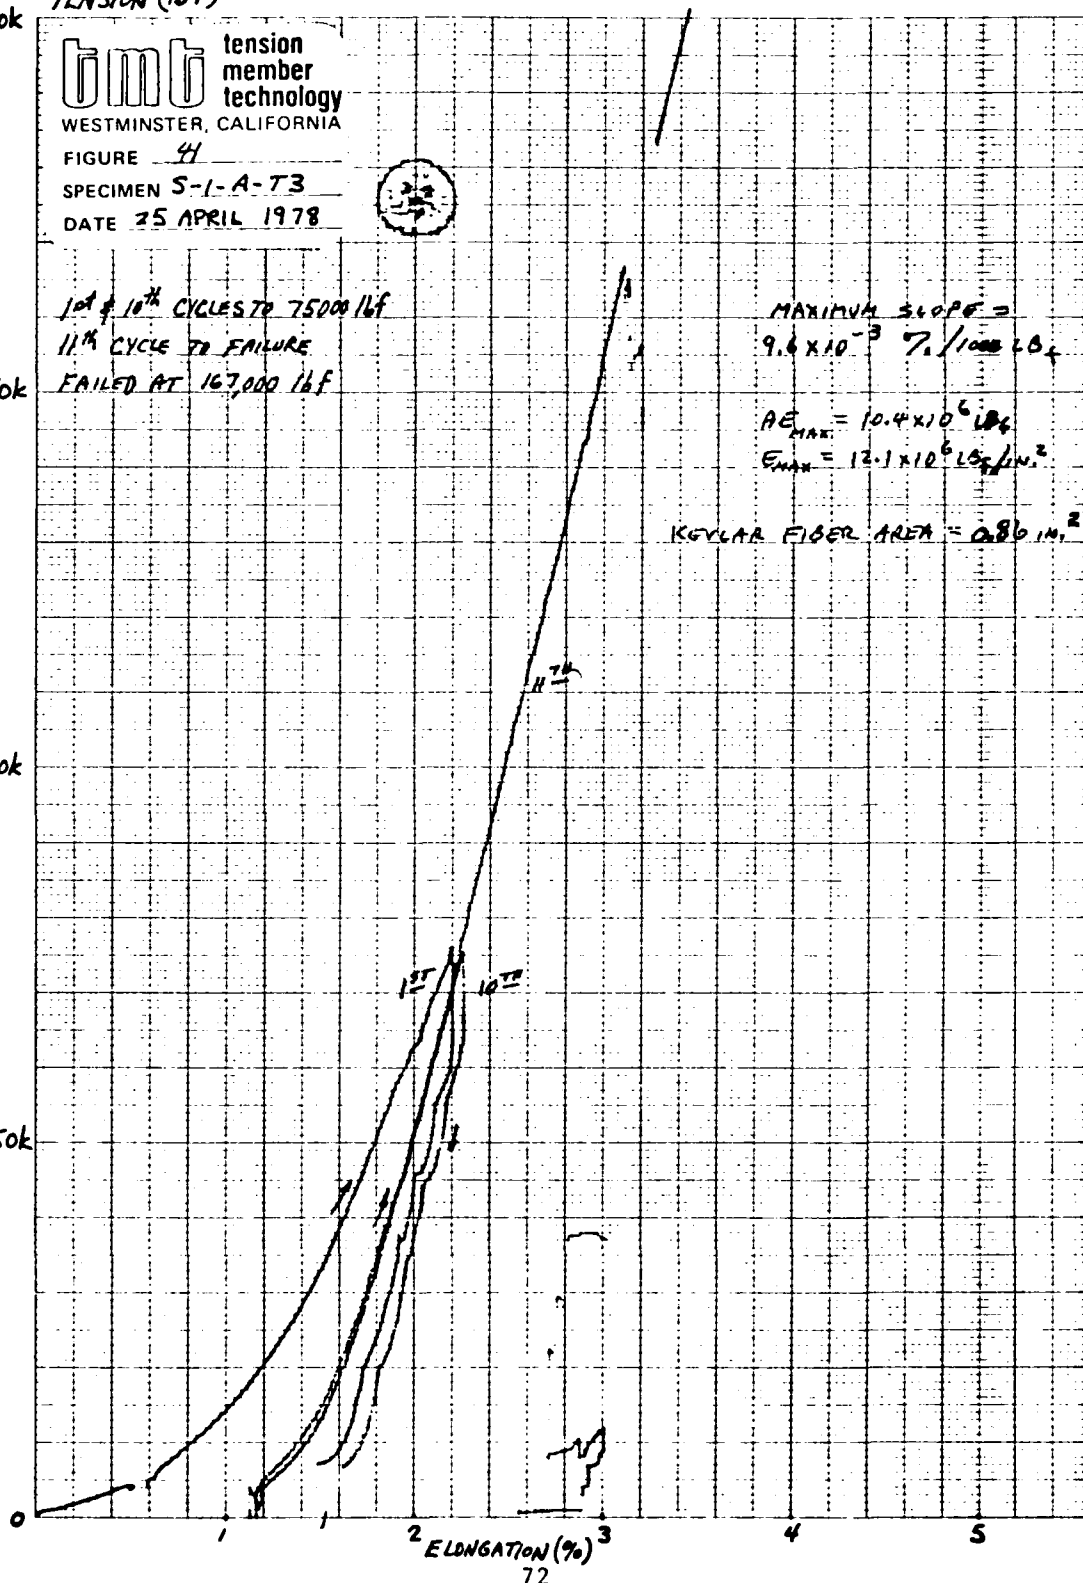 TENSION (lbf)
tmt tension
member
technology
WESTMINSTER, CALIFORNIA
FIGURE 41
SPECIMEN S-1-A-T3
DATE 25 APRIL 1978
1st & 10th CYCLES TO 75000 lbf
11th CYCLE TO FAILURE
FAILED AT 167,000 lbf
MAXIMUM SLOPE =
9.6 x 10-3 %/1000 LBf
AEMAX = 10.4 x 10^6 LBf
EMAX = 12.1 x 10^6 LBf/IN.2
KEVLAR FIBER AREA = 0.86 IN.2
11TH
1ST
10TH
50k
0
1
1
2
3
4
5
ELONGATION (%)
72